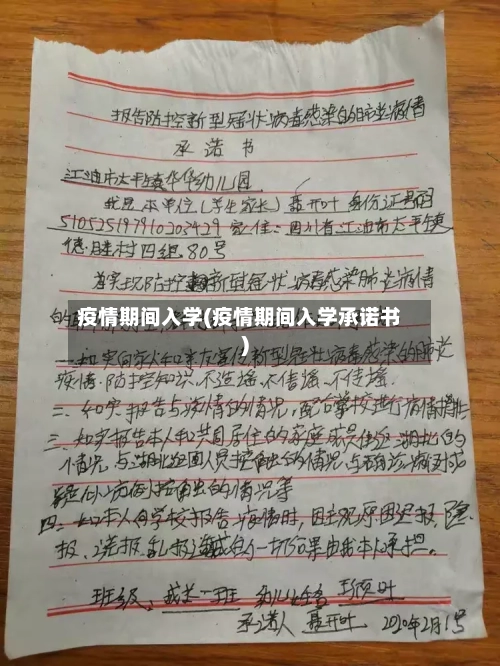 报告防控新型冠状病毒感染的肺炎病情
承诺书
江油市太平镇华华幼儿园
我是本单位(学生家长)聂开叶身份证号码
510525197910203429家住:四川省江油市太平镇
德胜村四组80号
为实现防护新型冠状病毒感染肺炎病情
的
疫情期间入学(疫情期间入学承诺书
)
一.如实向家人和亲友宣传新型冠状病毒感染的肺炎
疫情防控知识、不造谣、不信谣、不传谣.
二、如实报告与疫情的情况,配合学校进行病情摸排
三、如实报告本人和共同居住的家庭成员
情况、与湖北返回人员接触的情况与确诊病例或
疑似病例接触的情况等
四.如本人向学校报告病情时,因主观原因迟报、隐
报、谎报、乱报造成的一切后果由我本人承担。
班级、成长一班 幼儿姓名
承诺人 聂开叶 2020年2月1号